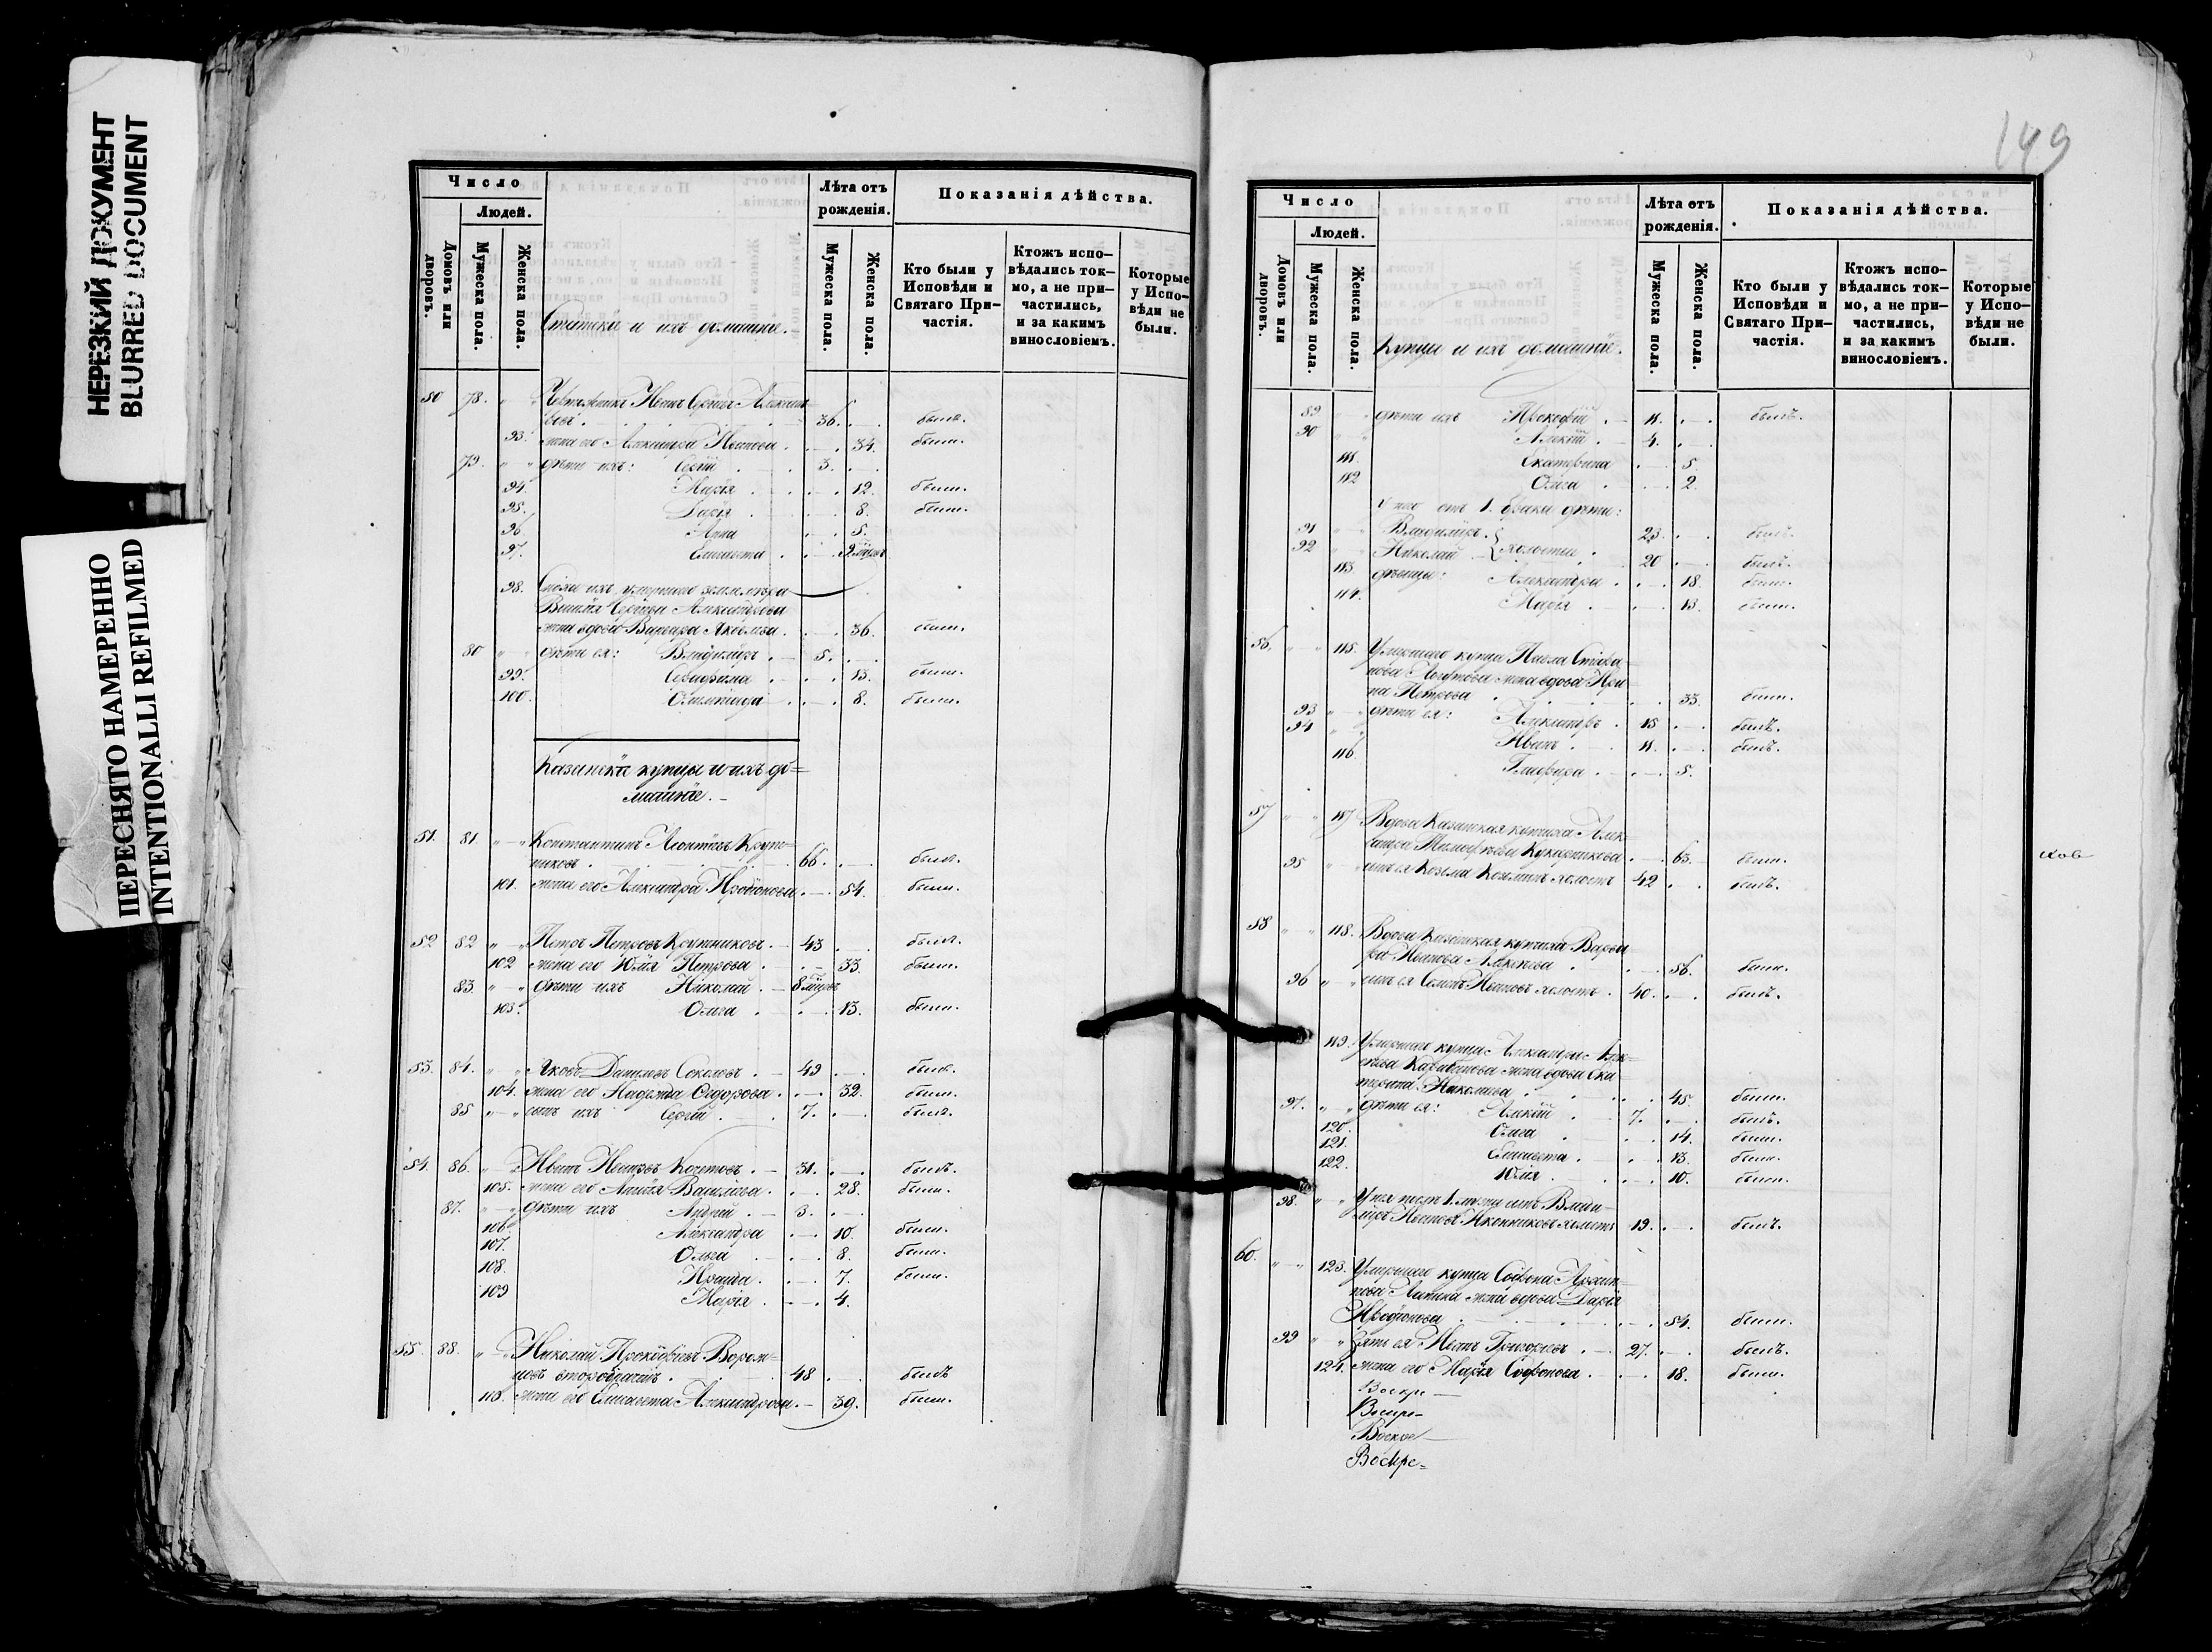 НЕРЕЗКИЙ ДОКУМЕНТ
BLURRED DOCUMENT
ПЕРЕСНЯТО НАМЕРЕННО
INTENTIONALLI REFILMED
Число
Людей.
Домовъ или дворовъ.
Мужеска пола.
Женска пола.
Статскіе и ихъ домашніе.
Лѣта отъ рожденія.
Мужеска пола.
Женска пола.
Показанія дѣйства.
Кто были у Исповѣди и Святаго При-частія.
Ктожъ испо-вѣдались ток-мо, а не при-частились, и за какимъ винословіемъ.
Которые у Испо-вѣди не были.
50 78. " " Иванъ Сергѣевъ
36. былъ.
93. жена его Александра Иванова 34. была.
79. " " дѣти ихъ: Сергій 3.
94. Марія 12. была.
95. Дарія 8. была.
96. Анна 5.
97. Елисавета
98. умершаго землемѣра
жена вдова Варвара Яковлева 36. была.
80 " " дѣти ея: Владиміръ 5.
99. Серафима 13. была.
100. Олимпіада 8. была.
Казанскіе купцы и ихъ до=
машніе. –
51. 81. " " Константинъ Леонтьевъ Круп=
никовъ 66. былъ.
101. жена его Александра Иродіонова 54. была.
52 82 " " Петръ Петровъ Крупниковъ 43 былъ.
102 жена его Юлія Петрова 33. была.
83. " " дѣти ихъ Николай
103. Ольга 13. была.
53. 84. " " Яковъ Даниловъ Соколовъ 49 былъ.
104. жена его Надежда Сидорова 32. была.
85 " " сынъ ихъ Сергій 7. былъ.
54. 86. " Иванъ Ивановъ Кочетовъ 31. былъ.
105. жена его 28. была.
87. " " дѣти ихъ Андрей 3.
106. Александра 10. была.
107. Ольга 8. была.
108. Ираида 7. была.
109 Марія 4.
55. 88. " Николай Прокофьевъ
второбрачн. 48 былъ
110. жена его Елисавета Александрова 39. была.
149
Число
Людей.
Домовъ или дворовъ.
Мужеска пола.
Женска пола.
Купцы и ихъ домашніе.
Лѣта отъ рожденія.
Мужеска пола.
Женска пола.
Показанія дѣйства.
Кто были у Исповѣди и Святаго При-частія.
Ктожъ испо-вѣдались ток-мо, а не при-частились, и за какимъ винословіемъ.
Которые у Испо-вѣди не были.
89 дѣти ихъ Прокофій 11. былъ.
90 Алексій 4.
111. Екатерина 5.
112 Ольга 2.
отъ 1. брака дѣти:
91 Владиміръ 23. былъ.
92 Николай холосты 20 былъ.
113. дѣвицы: Александра 18. была.
114. Марія 13. была.
56. " " 115. Умершаго купца Павла Степа=
нова жена вдова Ири=
на Петрова 33. была.
93 " дѣти ея: Александръ 15 былъ.
94 " Иванъ 11. былъ.
116. Глафира 5.
57 " " 117. Вдова Казанская купчиха Алек=
сандра 63. была.
95 " сынъ ея Козьма Козьминъ холостъ 42 былъ.
ковъ
58 " " 118. Вдова Казанская купчиха Варва=
ра Иванова 56. была.
96 " " сынъ ея Семенъ Ивановъ холостъ 40. былъ.
119. Умершаго купца Александра
жена вдова Ека=
терина Николаева 45. была.
97. " " дѣти ея: Алексій 7. былъ.
120. Ольга 14. была.
121. Елисавета 13. была.
122. Юлія 10. была.
98. " " Влади=
міръ Ивановъ Иконниковъ холостъ 19. былъ.
60. " " 123. Умершаго купца Софона Архип=
пова жена вдова Дарія
Иродіонова 54. была.
99 " " Зять ея Иванъ Григорьевъ 27. былъ.
124. жена его Марія Софонова 18. была.
Воскре –
Воскре–
Воскре–
Воскре=